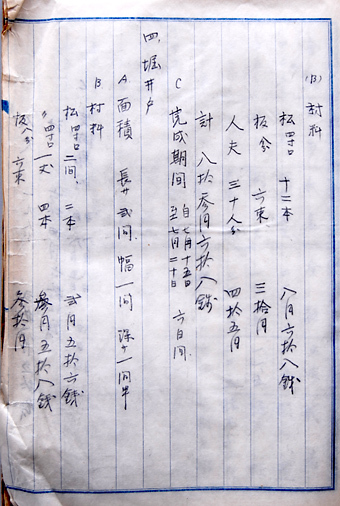 (B) 材料
松 四寸口 十二本 八円六拾八銭
板八分 六束 三拾円
人夫 三十人分 四拾五円
計 八拾参円六拾八銭
C 完成期間 自七月十五日 至七月二十日 六日間
四、堀井戸
A 面積 長サ弐間 幅一間 深サ一間半
B 材料
松 四寸口二間、二本 弐円五拾六銭
〃 四寸口一丈 四本 参円五拾八銭
板八分 六束 参拾円